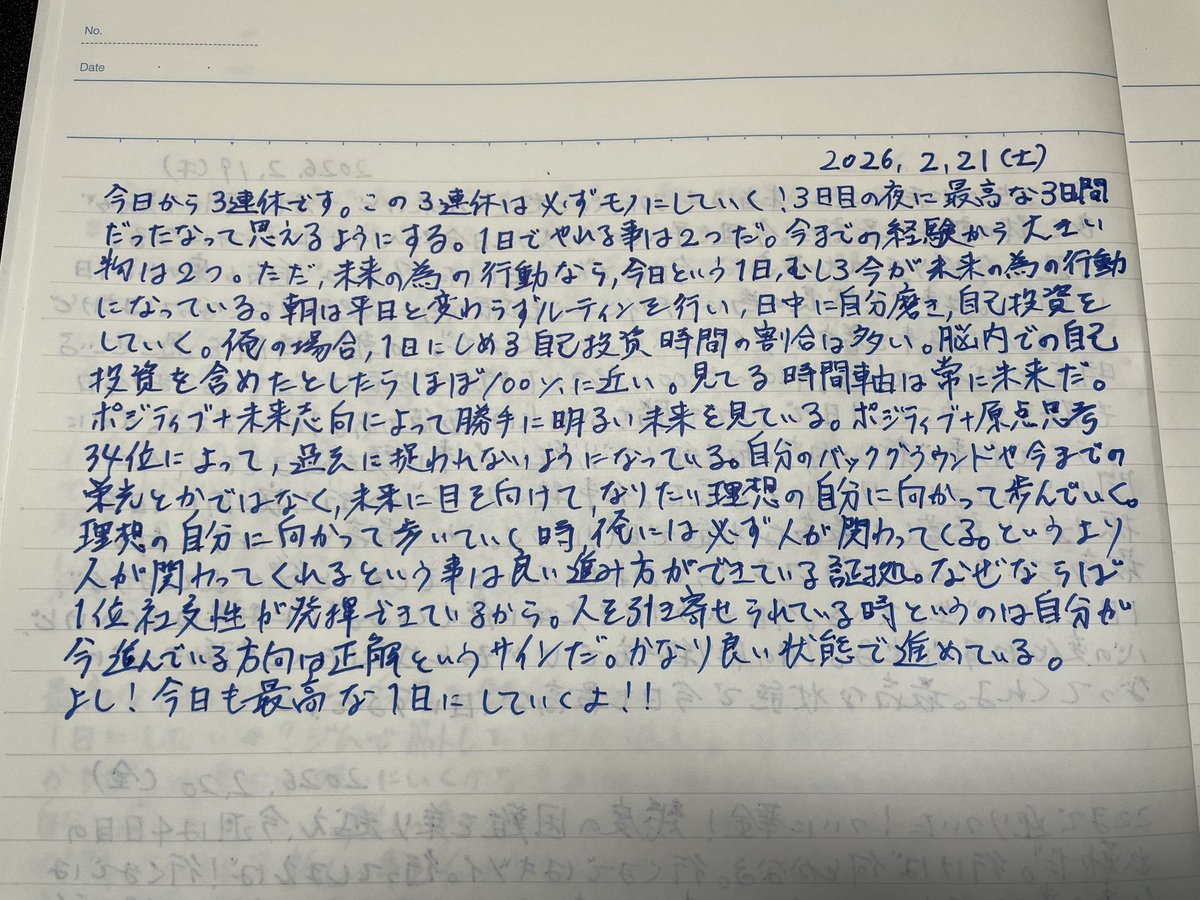 No.
Date
2026. 2. 21 (土)
今日から3連休です。この3連休は必ずモノにしていく!3日目の夜に最高な3日間
だったなって思えるようにする。1日でやれる事は2つだ。今までの経験から大きい
物は2つ。ただ,未来の為の行動なら,今日という1日,むしろ今が未来の為の行動
になっている。朝は平日と変わらずルーティンを行い,日中に自分磨き,自己投資を
していく。俺の場合,1日にしめる自己投資時間の割合は多い。脳内での自己
投資を含めたとしたらほぼ100%に近い。見てる時間軸は常に未来だ。
ポジティブ+未来志向によって勝手に明るい未来を見ている。ポジティブ+原点思考
34位によって,過去に捉われないようになっている。自分のバックグラウンドや今までの
栄光とかではなく,未来に目を向けて,なりたい理想の自分に向かって歩んでいく。
理想の自分に向かって歩いていく時俺には必ず人が関わってくる。というより
人が関わってくれるという事は良い進み方ができている証拠。なぜならば
1位社交性が発揮できているから。人を引き寄せられている時というのは自分が
今進んでいる方向は正解というサインだ。かなり良い状態で進めている。
よし!今日も最高な1日にしていくよ!!